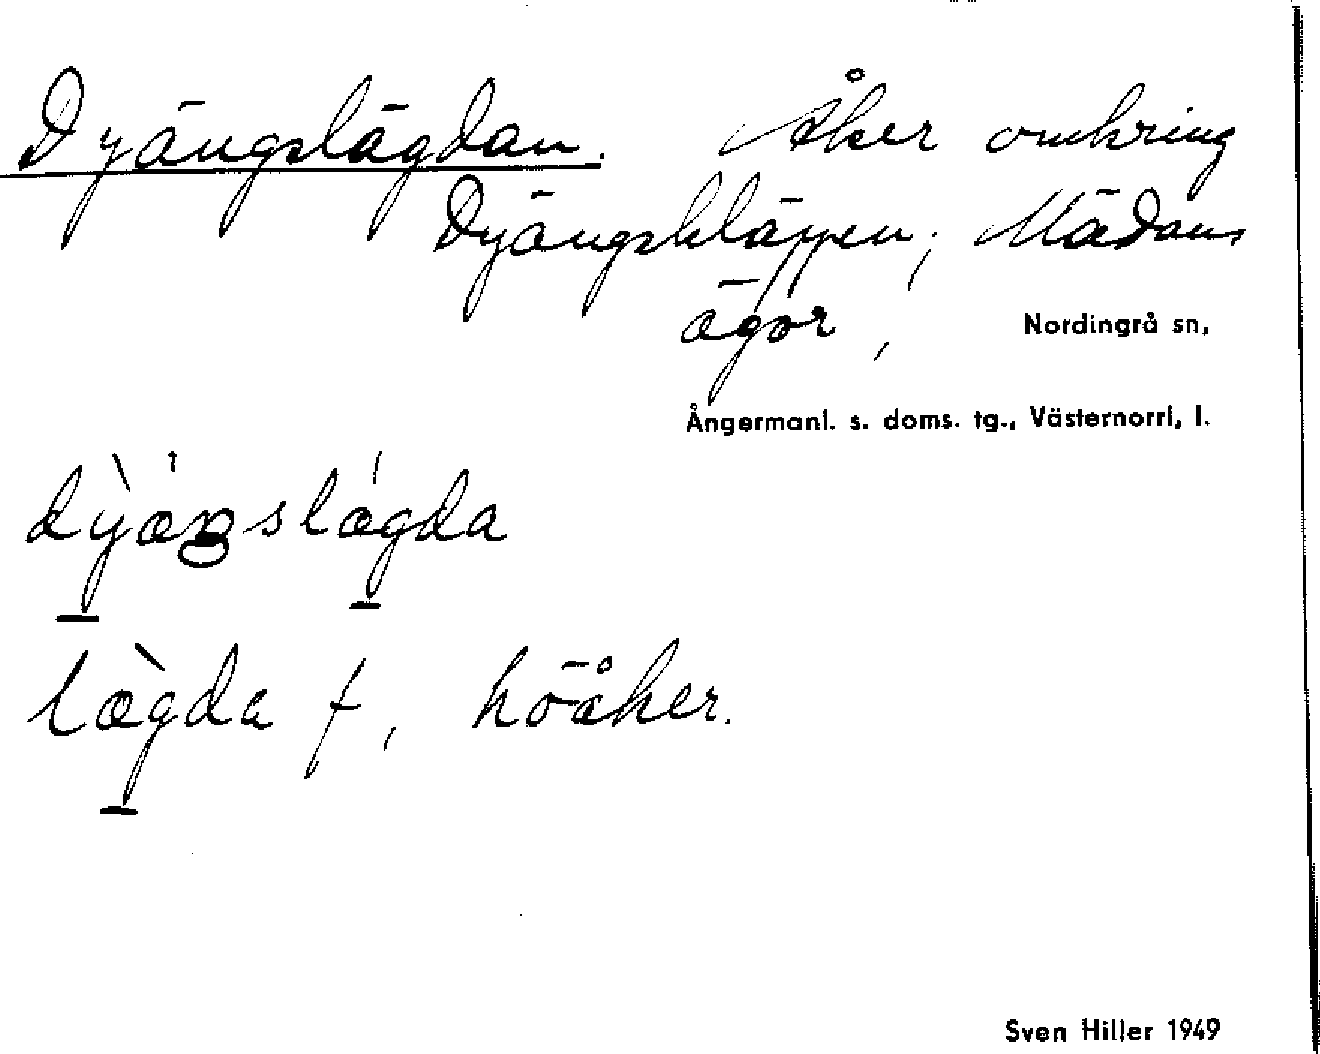 Dyängslägdan. Åker omkring
Dyängskläppen; Mädans
ägor,
Nordingrå sn,
Ångermanl. s. doms. tg., Västernorrl, l.
dỳæŋslægda
læ̀gda f, höåker.
Sven Hiller 1949